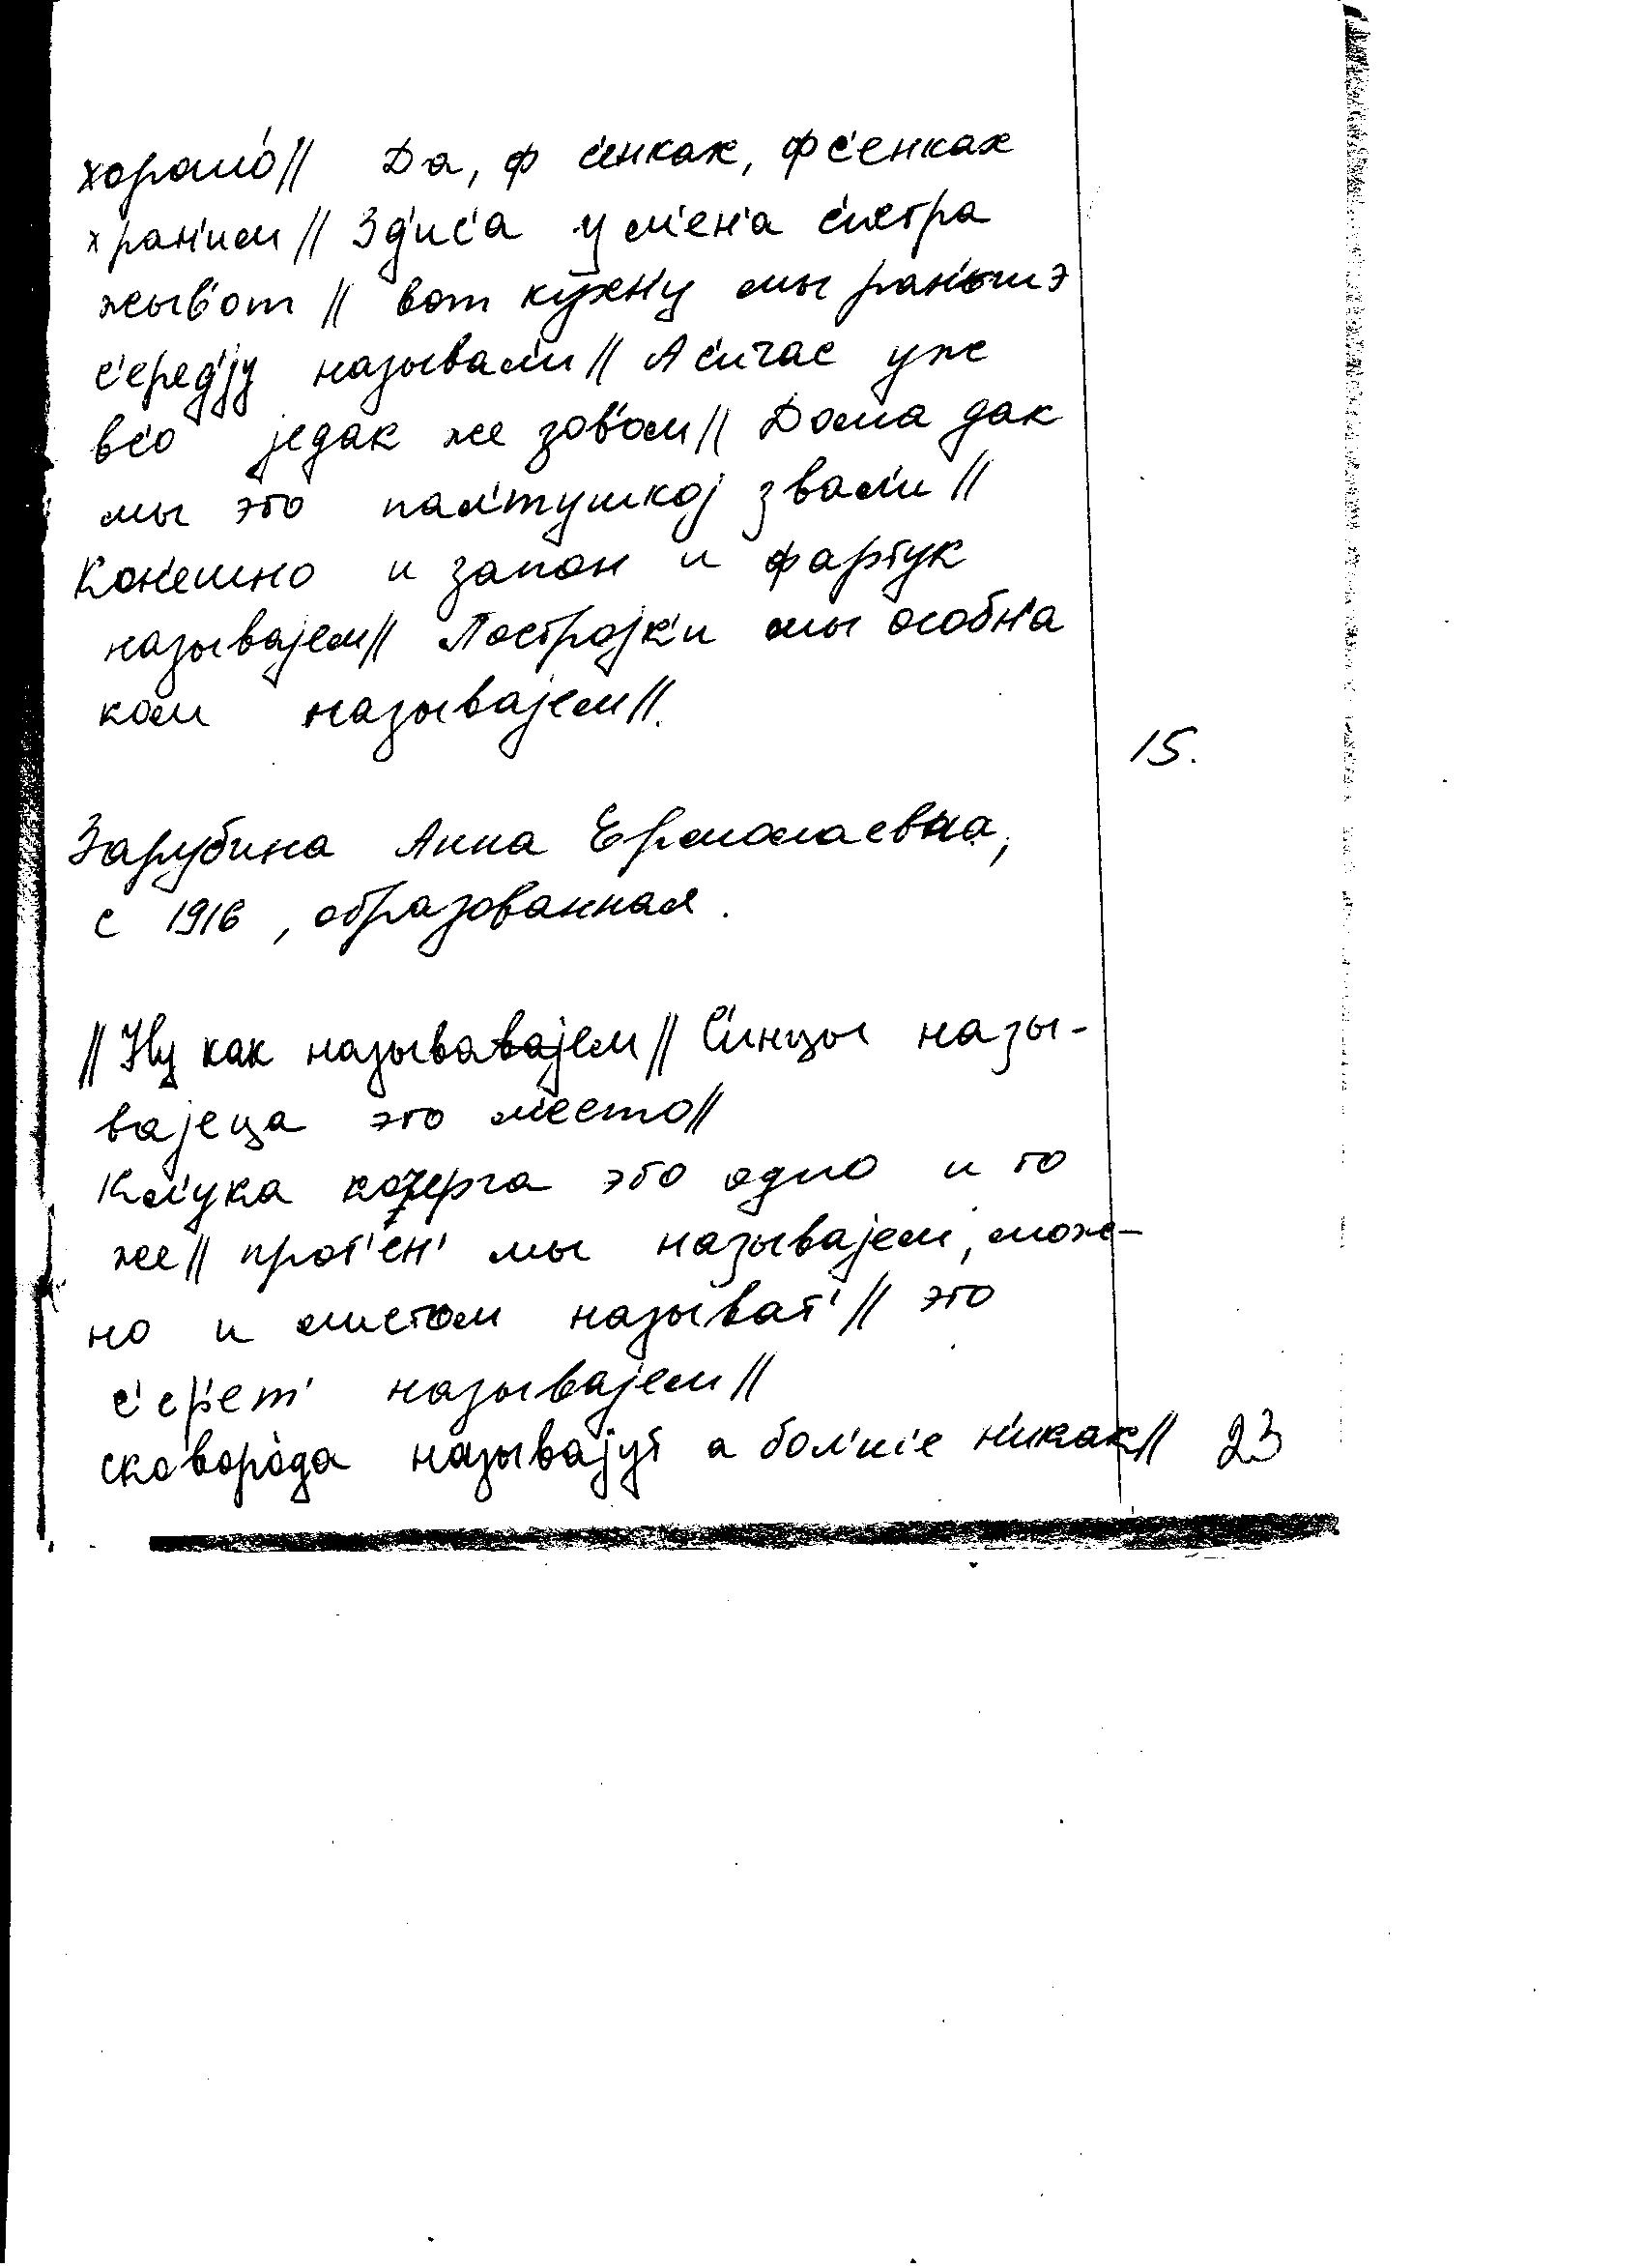 хорошо́// Да, ф с'инках, фс'енках
хран'им// Зд'ис'а у м'ен'а с'истра
жыв'от // вот кухн'у мы ран'ышэ
с'еред'jу называл'и// А с'ичас уже
вс'о jедак же зов'ом// Дома дак
мы это пал'тушкоj звал'и//
Кон'ешно и запон и фартук
называjем// Построjк'и мы особн'а
ком называjем//.
15.
Зарубина Анна Ермолаевна,
с 1916, образованная.
// Ну как называjем// С'инцы назы-
ваjеца это м'есто//
Кл'ука кочерга это одно и то
же// прот'ен' мы называjем, мож-
но и листом называт'// это
с'ер'ет' называjем//
сковорода называjут а бол'ше н'икак// 23